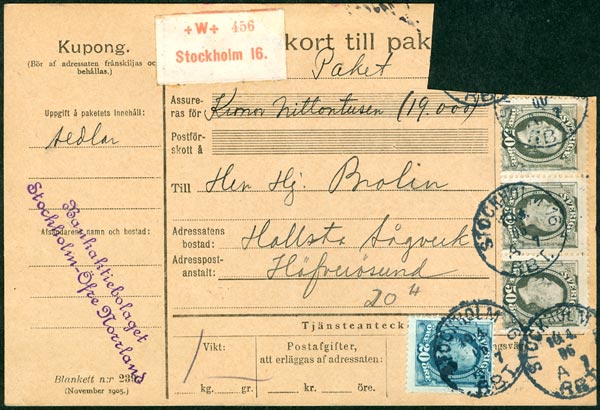 Kupong.
(Bör af adressaten frånskiljas och
behållas.)
+W+ 456
Stockholm 16.
kort till pak
Paket
Uppgift å paketets innehåll:
sedlar
Assure-
ras för
Kronor Nittontusen (19.000)
Postför-
skott å
Till
Herr Hj. Brolin
Afsändarens namn och bostad:
Bankaktiebolaget
Stockholm-Öfre Norrland
Adressatens
bostad:
Hallsta Sågverk
Adresspost-
anstalt:
20 4
Tjänsteanteck
Vikt:
Postafgifter,
att erläggas af adressaten:
kg.
gr.
kr.
öre.
Blankett n:r 23
(November 1905.)
SVERIGE
50
STOCKHOLM 16
A
7
RBT.
20